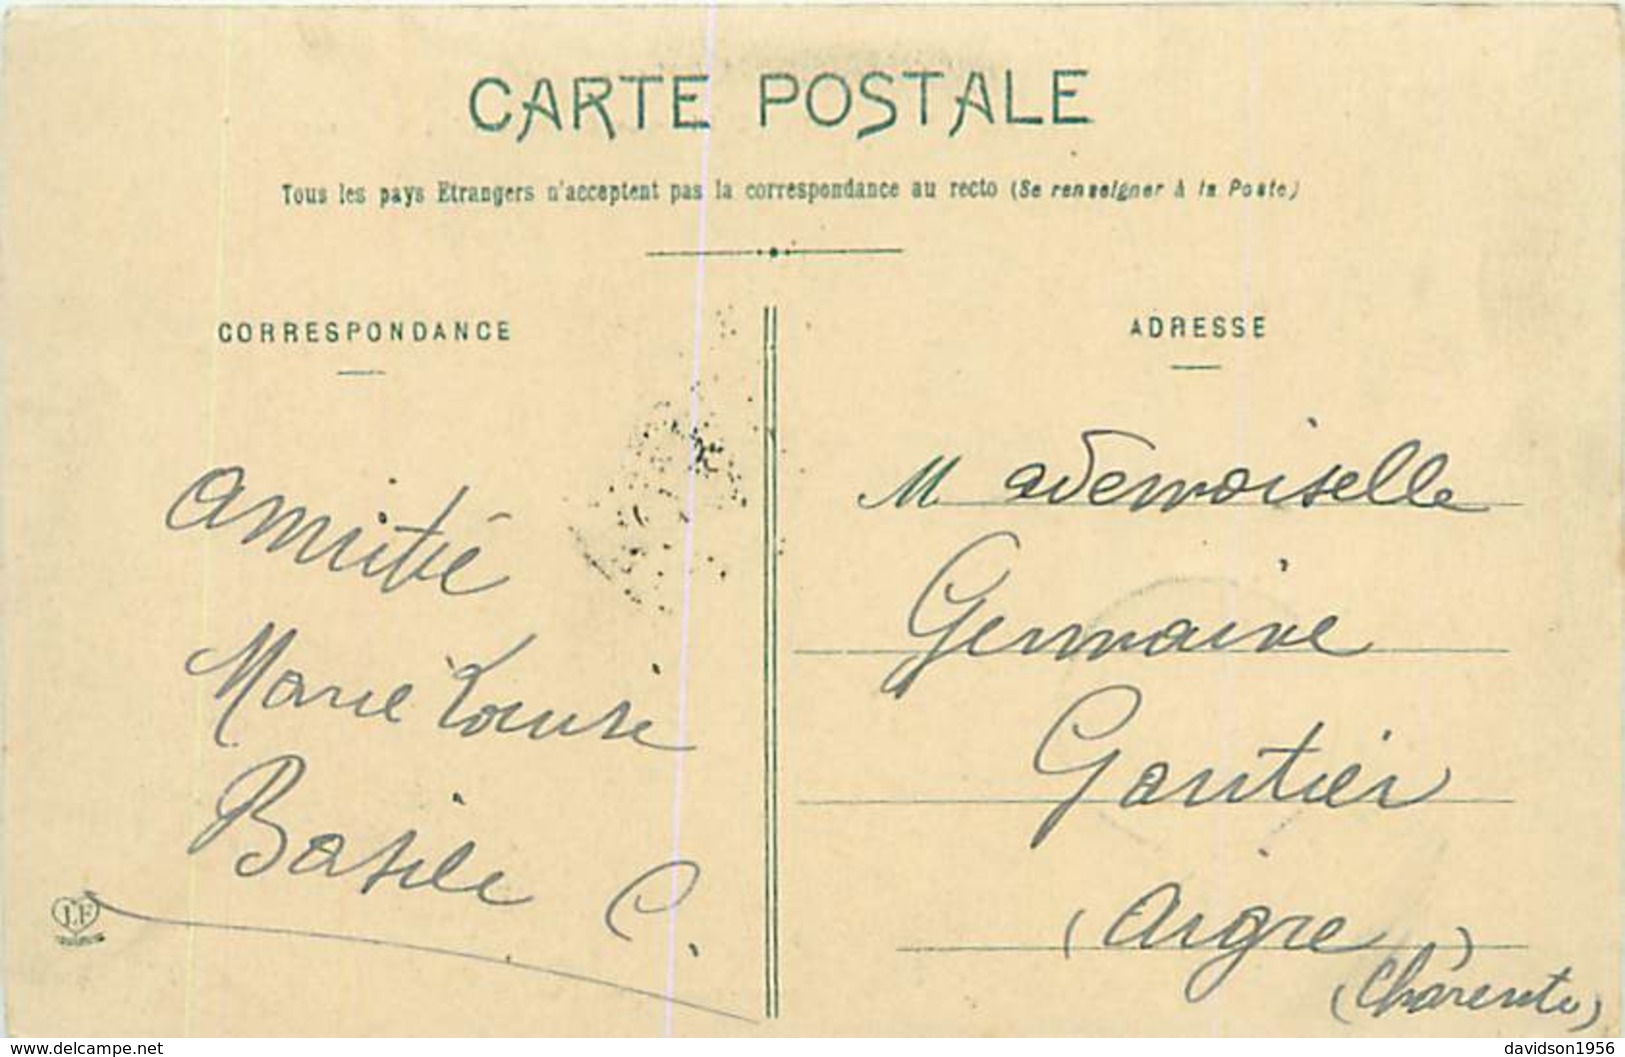 CARTE POSTALE
Tous les pays Etrangers n'acceptent pas la correspondance au recto (Se renseigner à la Poste)
CORRESPONDANCE
amitié
Marie Louise
Basile C.
LF
ADRESSE
Mademoiselle
Germaine
Gautier
(Aigre)
(Charente)
www.delcampe.net
davidson1956